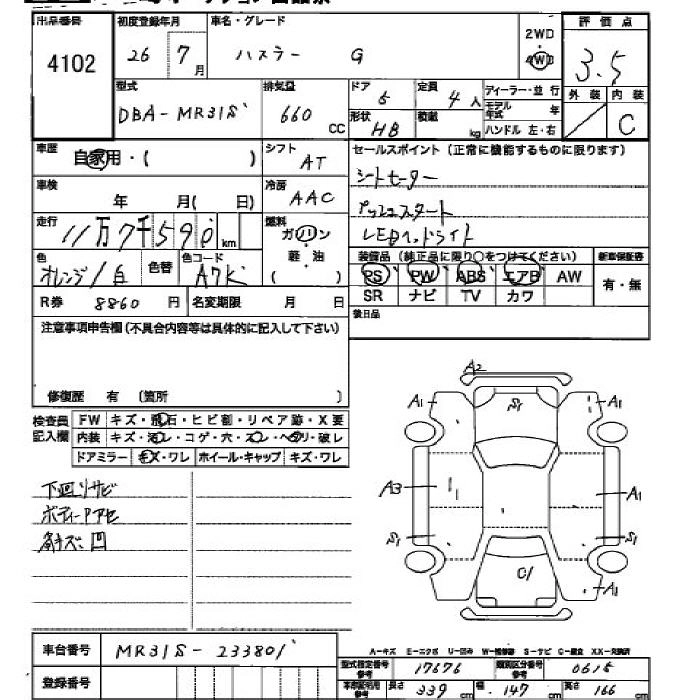 出品番号 初度登録年月 車名・グレード 2WD 評価点
4102 26 7月 ハスラー G 4WD 3.5
外装 内装
C
型式 排気量 ドア 定員 ディーラー・並行
DBA-MR31S 660 CC 5 4人 モデル年式 年
形状 積載 kg ハンドル 左・右
HB
車歴 自家用・( ) シフト AT セールスポイント(正常に機能するものに限ります)
車検 年 月( 日) 冷房 AAC シートヒーター
プッシュスタート
走行 11万7千590km 燃料 ガソリン LEDヘッドライト
軽・油
( )
色 色替 色コード 装備品(純正品に限り○をつけてください) 新車保証書
オレンジ/白 A7K PS PW ABS エアB AW 有・無
R券 8860円 名変期限 月 日 SR ナビ TV カワ
注意事項申告欄(不具合内容等は具体的に記入して下さい) 後日品
修復歴 有 (箇所 )
検査員記入欄 FW キズ・飛石・ヒビ割・リペア跡・X要
内装 キズ・汚レ・コゲ・穴・スレ・ヘタリ・破レ
ドアミラー キズ・ワレ ホイール・キャップ キズ・ワレ
下回リサビ
ボディーアセ
キズ凹
A2
A1 S1 A1
A3 A1
S1 S1
G1
A1
車台番号 MR31S-233801
A-キズ E-エクボ U-凹み W-補修跡 S-サビ C-腐食 XX-交換済
型式指定番号 参考 17676 類別区分番号 参考 0615
登録番号 長さ 339 cm 幅 147 cm 高さ 166 cm